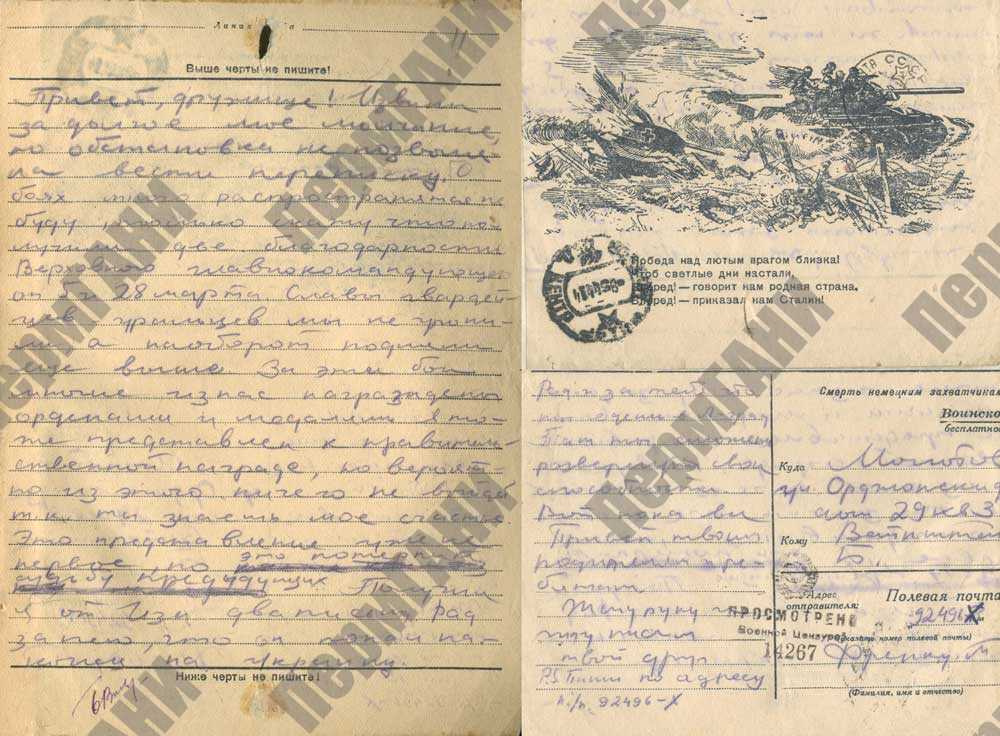 Линия
Выше черты не пишите!
Привет, дружище! Извини
за долгое мое молчание,
но обстановка не позволя-
ла вести переписку. О
боях много распространяться не
буду, только скажу что по
лучили две благодарности
Верховного главнокомандующего
от и 28 марта Славы гвардей-
цев уральцев мы не урони-
ли, а наоборот подняли
еще выше. За эти бои
многие из нас награждены
орденами и медалями. Я то-
же представлен к правитель-
ственной награде, но вероят-
но из этого ничего не выйдет
т.к. ты знаешь мое счастье.
Это представление уже не
первое, но это потерп
судьбу предыдущих. Получил
я от Изи два письма, рад
за него, что он попал на-
конец на Украину.
Ниже черты не пишите!
Победа над лютым врагом близка!
Чтоб светлые дни настали,
Вперед! — говорит нам родная страна,
Вперед! — приказал нам Сталин!
СССР
Рад за тебя, что
Там ты сможешь
развернуть свои
способности.
Вот пока все
Привет твоим
родителям и ре-
бятам
Жму руку
твой друг
P.S. Пиши по адресу
п/п. 92496-Х
Смерть немецким захватчикам
Воинское
бесплатное
Куда Молотов
ул Орджоникидзе
дом 29 кв 3
Кому Вайнштейн
Б.
Адрес
отправителя:
Полевая почта
92496 Х
(указать номер полевой почты)
Френк М.
(Фамилия, имя и отчество)
ПРОСМОТРЕНО
Военной Цензурой
14267
ПермГАНИ